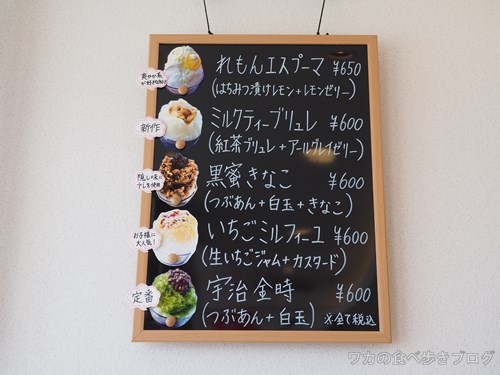 爽やか系
が好きな方に
れもんエスプーマ ¥650
(はちみつ漬けレモン+レモンゼリー)
新作
ミルクティーブリュレ ¥600
(紅茶ブリュレ+アールグレイゼリー)
隠し味に
黒蜜きなこ ¥600
(つぶあん+白玉+きなこ)
お子様に
大人気!
いちごミルフィーユ ¥600
(生いちごジャム+カスタード)
定番
宇治金時 ¥600
(つぶあん+白玉) ※全て税込
ワカの食べ歩きブログ